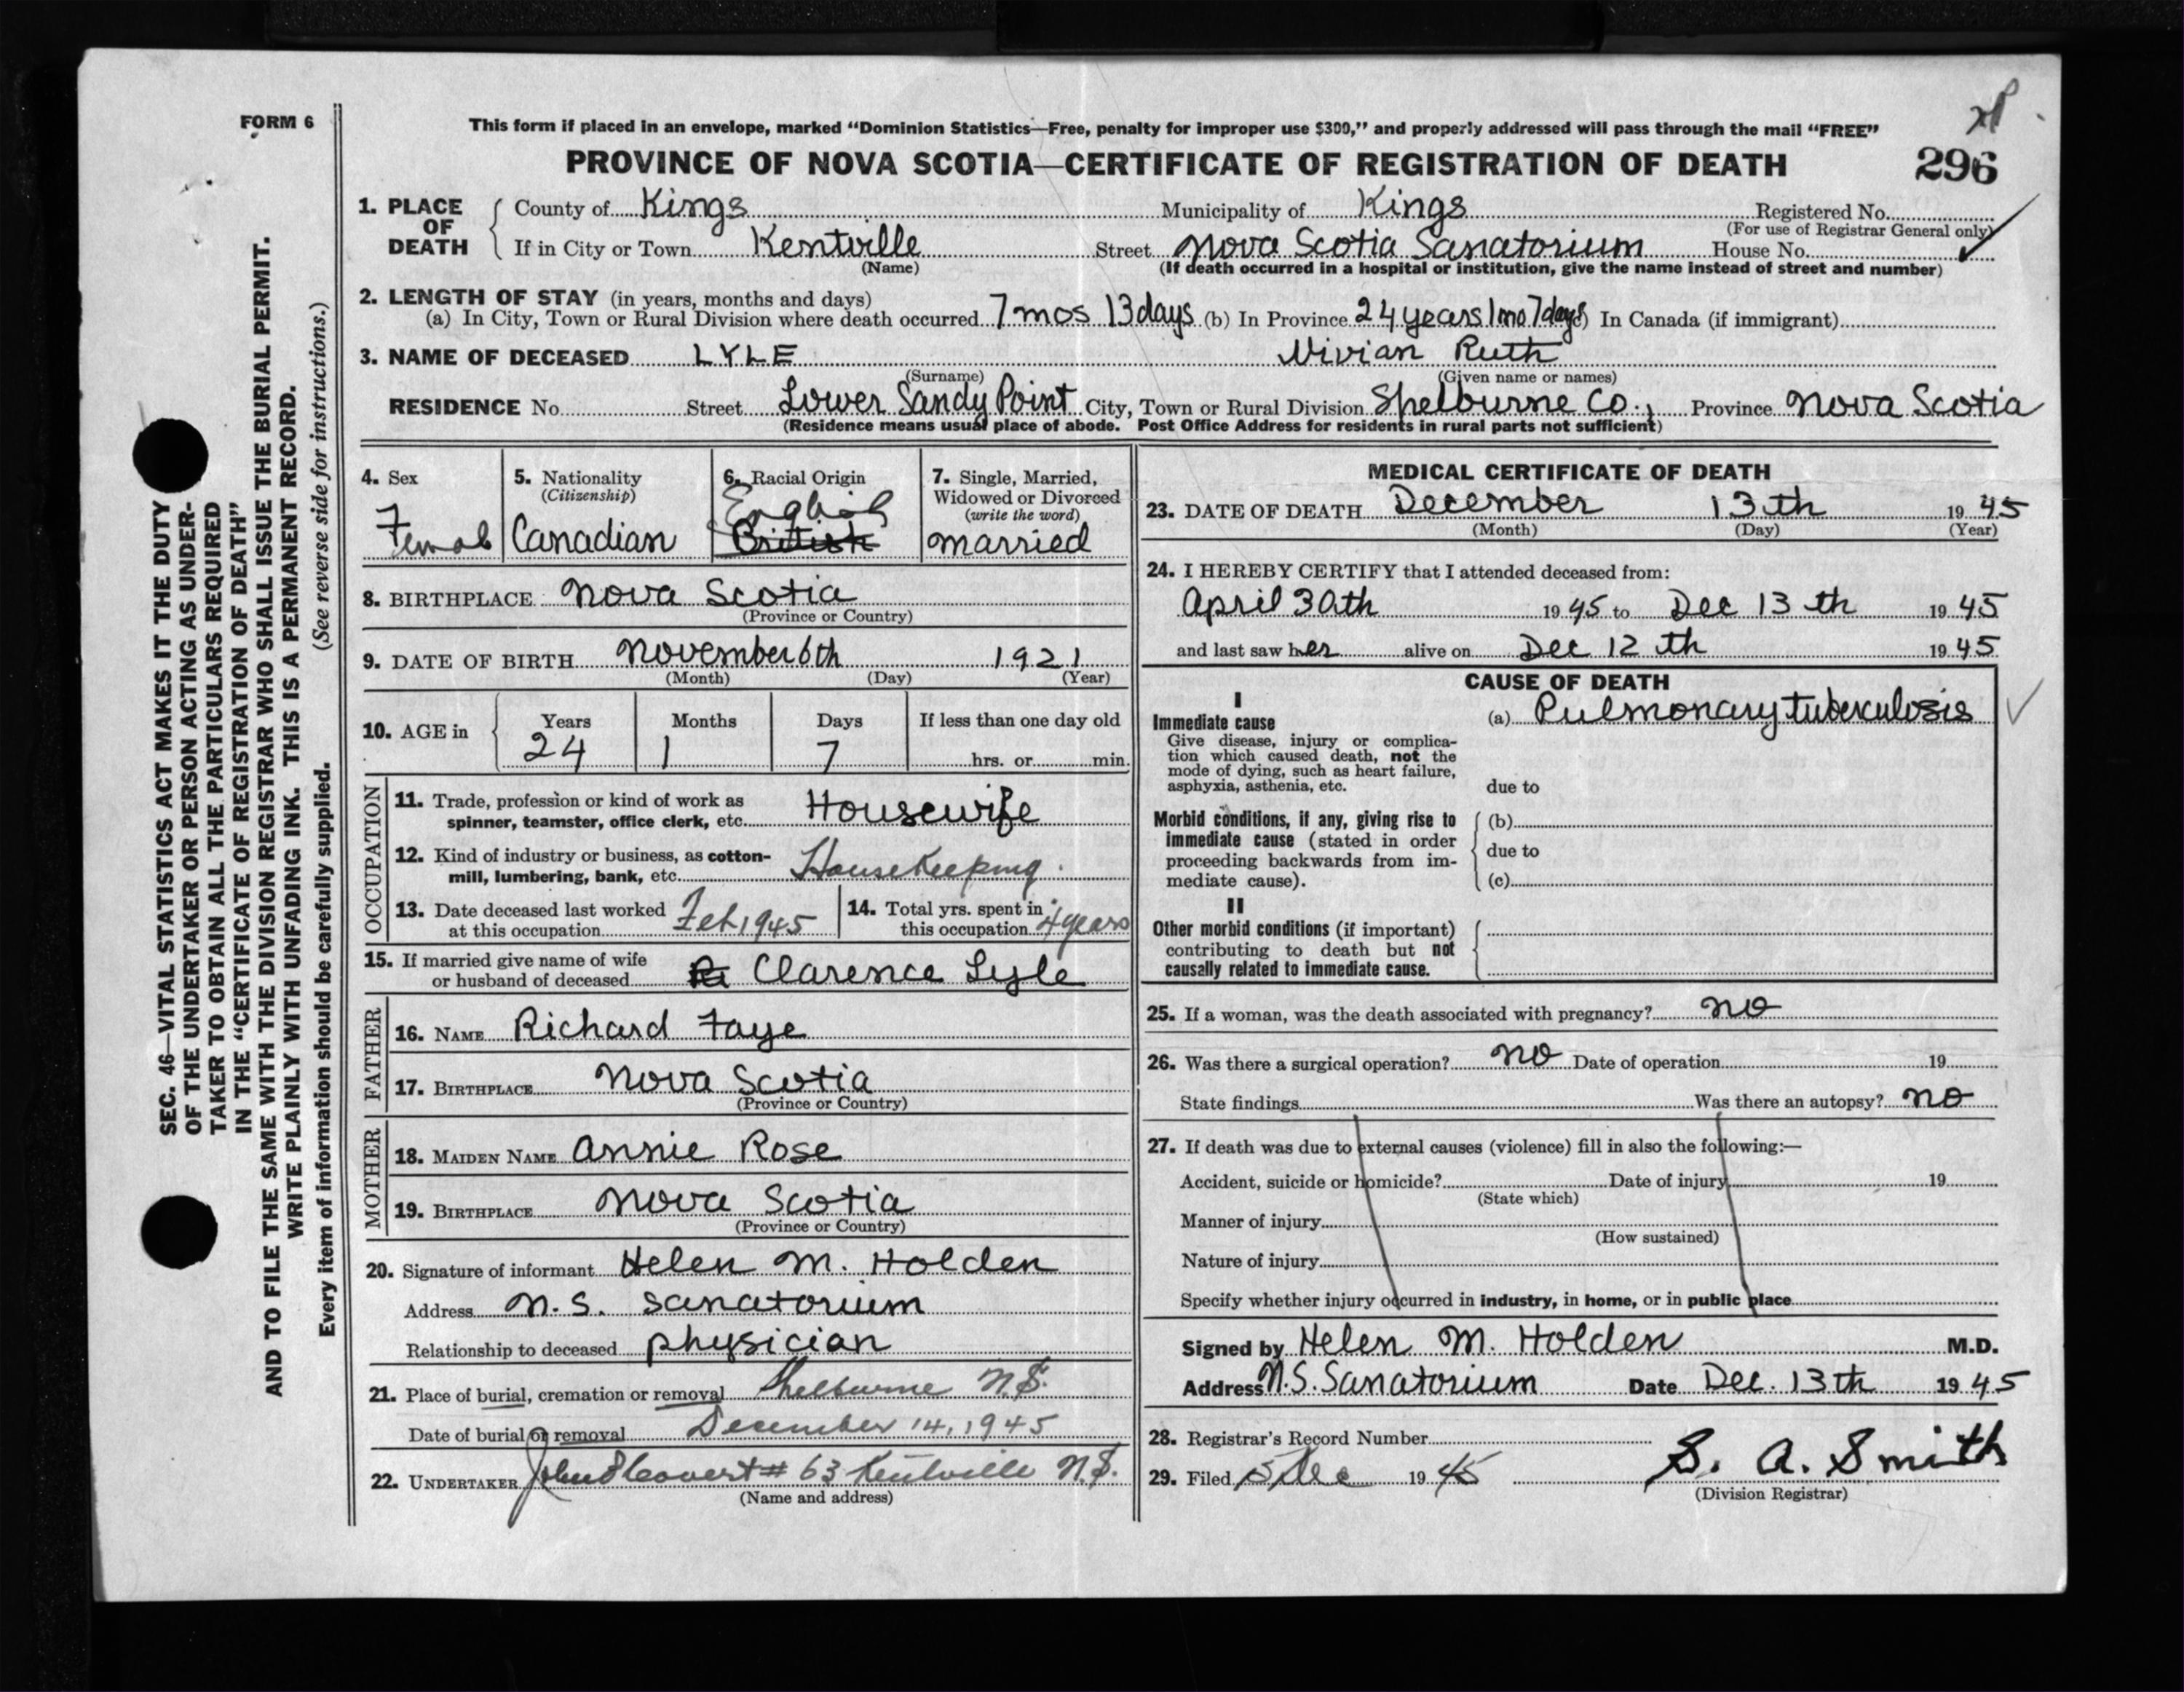 FORM 6
This form if placed in an envelope, marked “Dominion Statistics—Free, penalty for improper use $300,” and properly addressed will pass through the mail “FREE”
PROVINCE OF NOVA SCOTIA—CERTIFICATE OF REGISTRATION OF DEATH
296
1. PLACE OF DEATH
County of Kings Municipality of Kings Registered No.
(For use of Registrar General only)
If in City or Town Kentville Street Nova Scotia Sanatorium House No.
(Name) (If death occurred in a hospital or institution, give the name instead of street and number)
2. LENGTH OF STAY (in years, months and days)
(a) In City, Town or Rural Division where death occurred 7 mos 13 days (b) In Province 24 years 1 mo 7 days (c) In Canada (if immigrant)
3. NAME OF DECEASED LYLE Vivian Ruth
(Surname) (Given name or names)
RESIDENCE No. Street Lower Sandy Point City, Town or Rural Division Shelburne Co., Province Nova Scotia
(Residence means usual place of abode. Post Office Address for residents in rural parts not sufficient)
4. Sex
Female
5. Nationality
(Citizenship)
Canadian
6. Racial Origin
English
British
7. Single, Married,
Widowed or Divorced
(write the word)
married
8. BIRTHPLACE Nova Scotia
(Province or Country)
9. DATE OF BIRTH November 6th 1921
(Month) (Day) (Year)
10. AGE in
Years Months Days If less than one day old
24 1 7 hrs. or min.
OCCUPATION
11. Trade, profession or kind of work as
spinner, teamster, office clerk, etc. Housewife
12. Kind of industry or business, as cotton-
mill, lumbering, bank, etc. HouseKeeping.
13. Date deceased last worked
at this occupation Feb. 1945
14. Total yrs. spent in
this occupation 4 years
15. If married give name of wife
or husband of deceased Clarence Lyle
FATHER
16. NAME Richard Faye
17. BIRTHPLACE Nova Scotia
(Province or Country)
MOTHER
18. MAIDEN NAME Annie Rose
19. BIRTHPLACE Nova Scotia
(Province or Country)
20. Signature of informant Helen M. Holden
Address N.S. Sanatorium
Relationship to deceased physician
21. Place of burial, cremation or removal Shelburne N.S.
Date of burial or removal December 14, 1945
22. UNDERTAKER # 63 Kentville N.S.
(Name and address)
MEDICAL CERTIFICATE OF DEATH
23. DATE OF DEATH December 13th 1945
(Month) (Day) (Year)
24. I HEREBY CERTIFY that I attended deceased from:
April 30th 1945 to Dec 13th 1945
and last saw her alive on Dec 12th 1945
CAUSE OF DEATH
I
Immediate cause
Give disease, injury or complica-
tion which caused death, not the
mode of dying, such as heart failure,
asphyxia, asthenia, etc.
(a) Pulmonary tuberculosis
due to
Morbid conditions, if any, giving rise to
immediate cause (stated in order
proceeding backwards from im-
mediate cause).
(b)
due to
(c)
II
Other morbid conditions (if important)
contributing to death but not
causally related to immediate cause.
25. If a woman, was the death associated with pregnancy? no
26. Was there a surgical operation? no Date of operation 19
State findings Was there an autopsy? no
27. If death was due to external causes (violence) fill in also the following:—
Accident, suicide or homicide? Date of injury 19
(State which)
Manner of injury
(How sustained)
Nature of injury
Specify whether injury occurred in industry, in home, or in public place
Signed by Helen M. Holden M.D.
Address N.S. Sanatorium Date Dec. 13th 1945
28. Registrar's Record Number
29. Filed Dec 1945 S. A. Smith
(Division Registrar)
SEC. 46—VITAL STATISTICS ACT MAKES IT THE DUTY
OF THE UNDERTAKER OR PERSON ACTING AS UNDER-
TAKER TO OBTAIN ALL THE PARTICULARS REQUIRED
IN THE “CERTIFICATE OF REGISTRATION OF DEATH”
AND TO FILE THE SAME WITH THE DIVISION REGISTRAR WHO SHALL ISSUE THE BURIAL PERMIT.
WRITE PLAINLY WITH UNFADING INK. THIS IS A PERMANENT RECORD.
Every item of information should be carefully supplied. (See reverse side for instructions.)